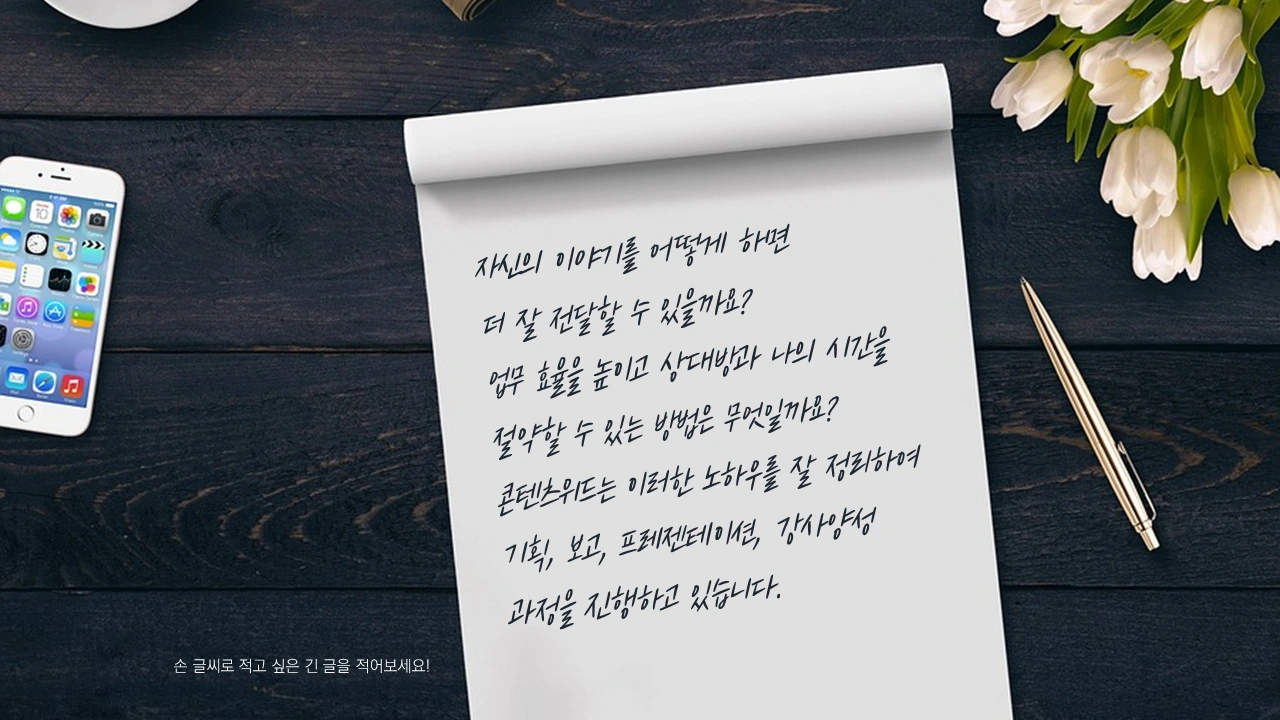 자신의 이야기를 어떻게 하면
더 잘 전달할 수 있을까요?
업무 효율을 높이고 상대방과 나의 시간을
절약할 수 있는 방법은 무엇일까요?
콘텐츠위드는 이러한 노하우를 잘 정리하여
기획, 보고, 프레젠테이션, 강사양성
과정을 진행하고 있습니다.
손 글씨로 적고 싶은 긴 글을 적어보세요!